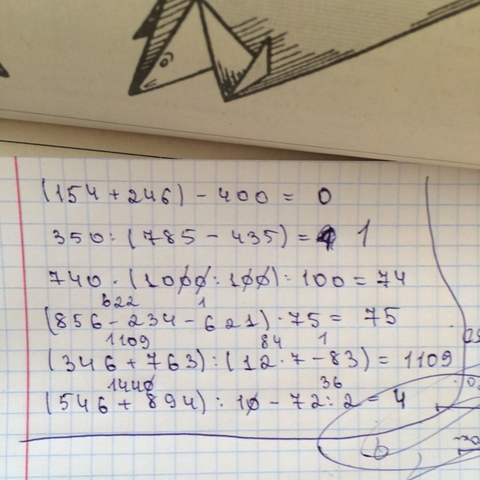 (154 + 246) - 400 = 0
350 : (785 - 435) = 1
740 · (1000 : 100) : 100 = 74
622 1
(856 - 234 - 621) · 75 = 75
1109 84 1
(346 + 763) : (12 · 7 - 83) = 1109
1440 36
(546 + 894) : 10 - 72 : 2 = 4